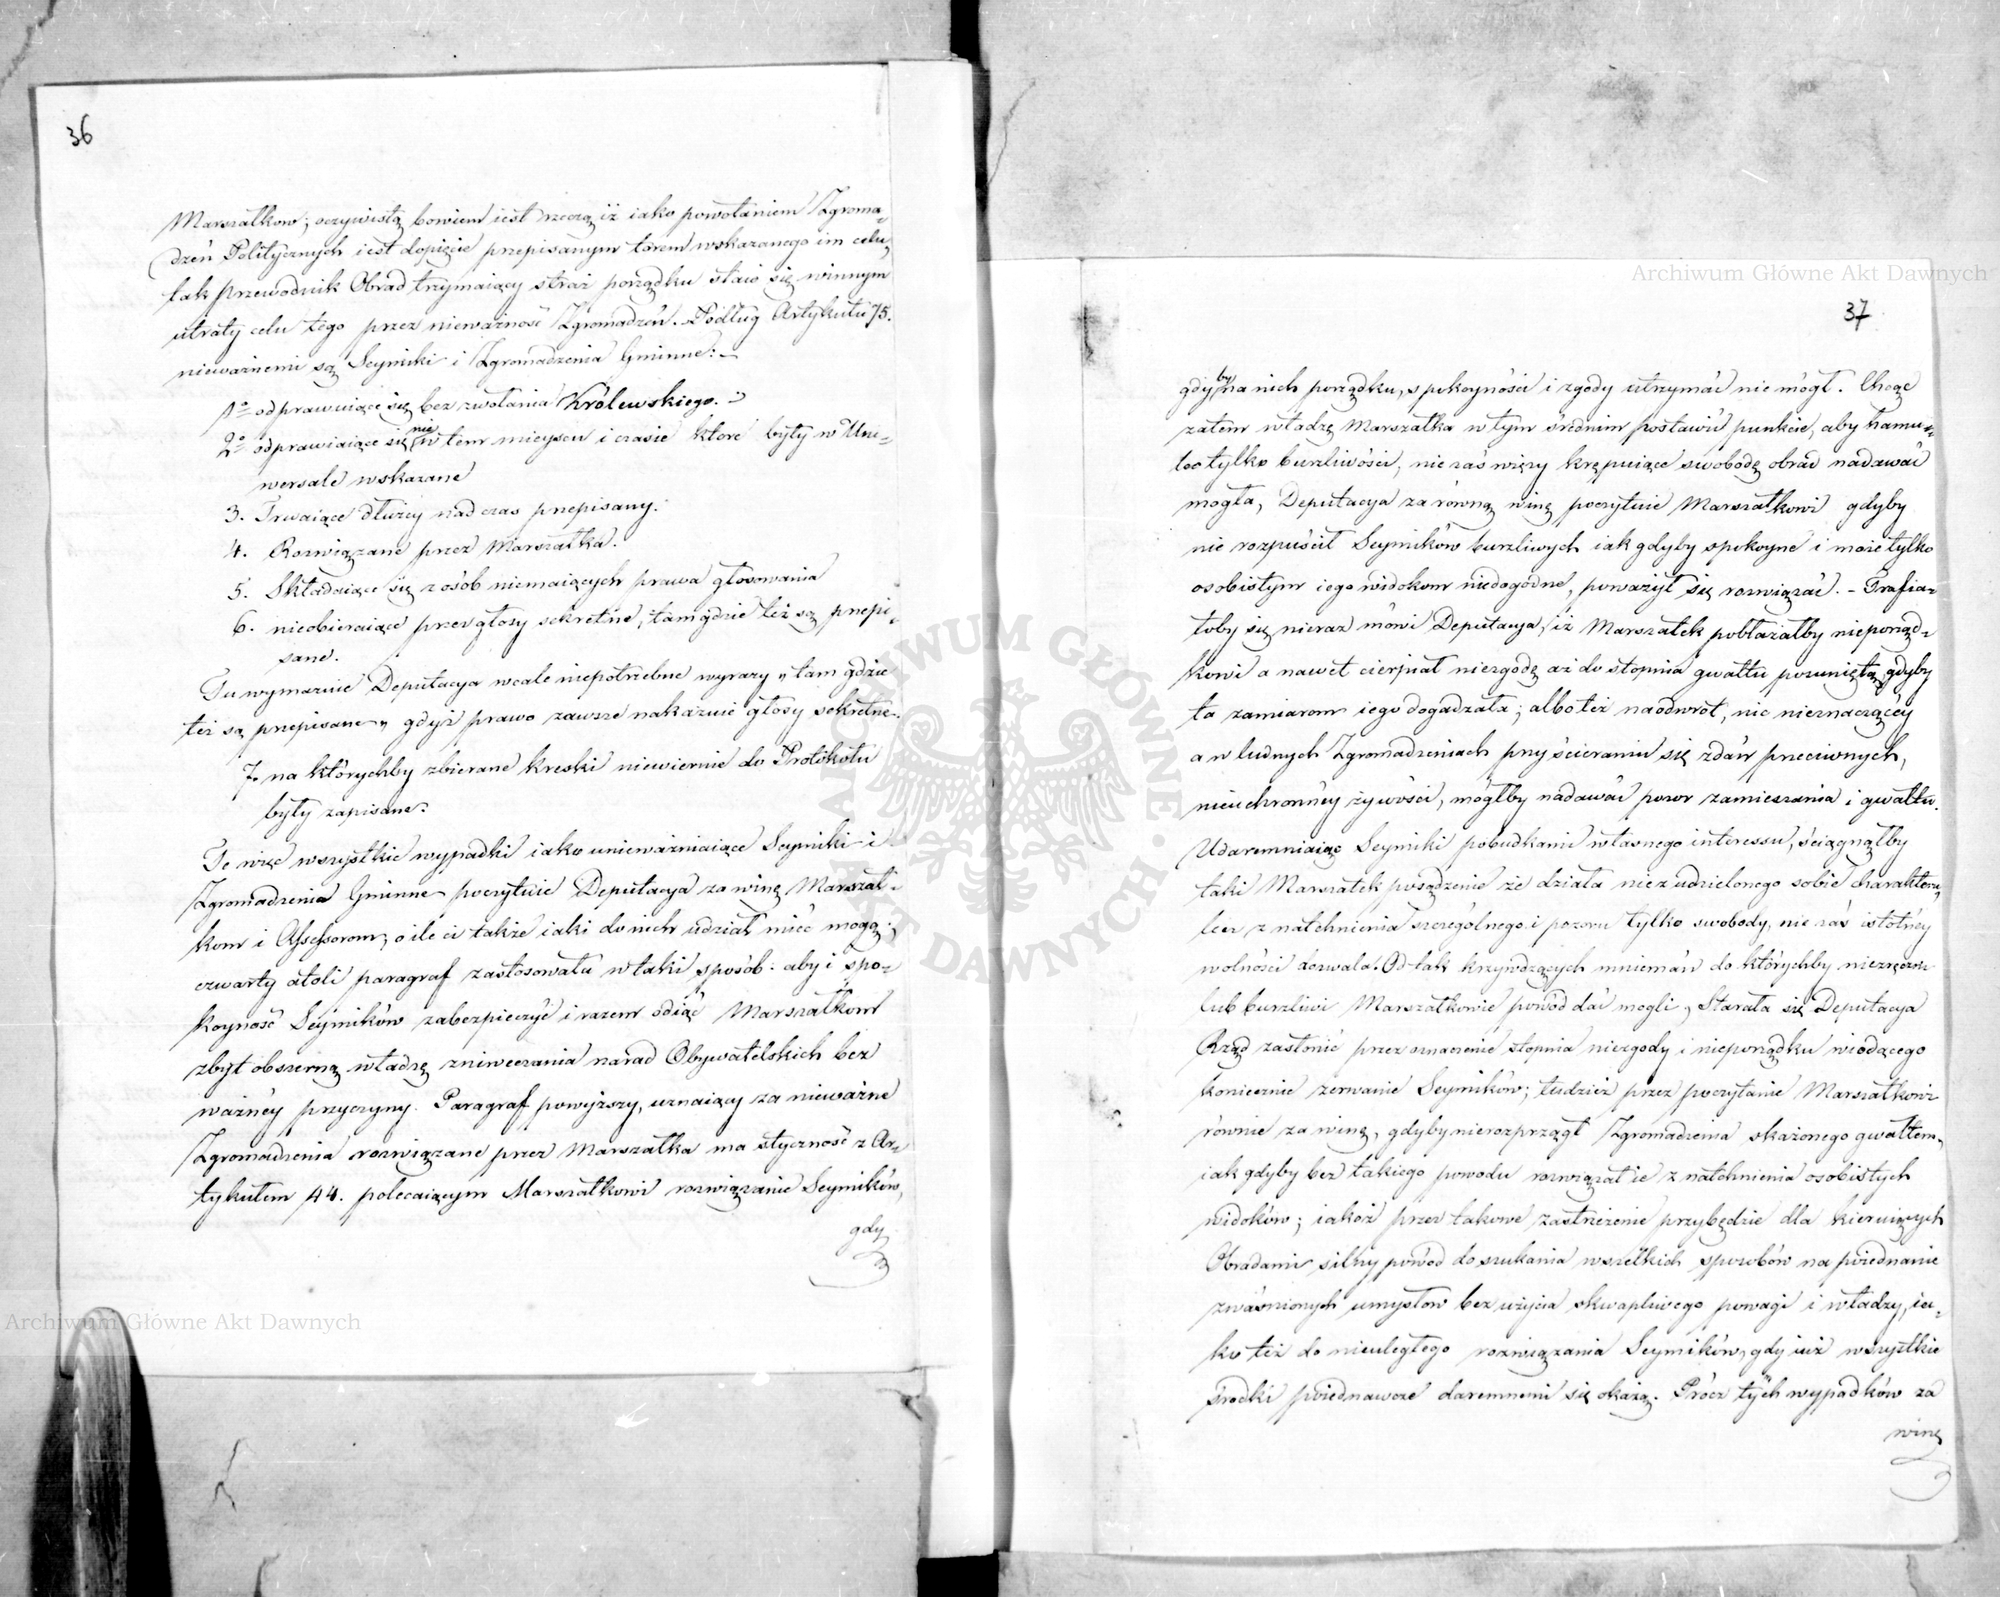 36
Marszałkow; oczywistą bowiem iest rzeczą iż iako powołaniem Zgroma-
dzeń Politycznych iest dopięcie przepisanym torem wskazanego im celu,
tak przewodnik Obrad trzymaiący straż porządku staie się winnym
utraty celu tego przez nieważność Zgromadzeń. Podług Artykułu 75.
nieważnemi są Seymiki i Zgromadzenia Gminne:
1o odprawuiące się bez zwołania Królewskiego.
2o odprawiaiące się nie w tem mieyscu i czasie które były w Uni-
wersale wskazane
3. Trwaiące dłużey nad czas przepisany.
4. Rozwiązane przez Marszałka.
5. Składaiące się z osób niemaiących prawa głosowania
6. nieobieraiące przez głosy sekretne, tam gdzie też są przepi-
sane.
Tu wymazuie Deputacya wcale niepotrzebne wyrazy „tam gdzie
też są przepisane„ gdyż prawo zawsze nakazuie głosy sekretne.
7. na którychby zbierane kreski niewiernie do Protokołu
były zapisane.
Te więc wszystkie wypadki iako unieważniaiące Seymiki i
Zgromadzenia Gminne poczytuie Deputacya za winę Marszał-
kom i Assessorom, o ile ci także iaki do nich udział mieć mogą;
czwarty atoli paragraf zastosowała w taki sposób: aby i spo-
koyność Seymików zabezpieczyć i razem odiąć Marszałkom
zbyt obszerną władzę zniweczania narad Obywatelskich bez
ważnéy przyczyny. Paragraf powyższy, uznaiący za nieważne
Zgromadzenia rozwiązane przez Marszałka ma styczność z Ar-
tykułem 44. polecaiącym Marszałkowi rozwiązanie Seymików,
gdy
37
gdyby na nich porządku, spokoyności i zgody utrzymać nie mógł. Chcąc
zatem władzę Marszałka w tym średnim postawić punkcie, aby hamu-
lec tylko burzliwości, nie zaś więzy krępuiące swobodę obrad nadawać
mogła, Deputacya za równą winę poczytuie Marszałkowi gdyby
nie rozpuścił Seymików burzliwych iak gdyby spokoyne i może tylko
osobistym iego widokom niedogodne, poważył się rozwiązać. - Trafia-
łoby się nieraz mówi Deputacya, iż Marszałek pobłażałby nieporząd-
kowi a nawet cierpiał niezgodę aż do stopnia gwałtu posuniętą, gdyby
ta zamiarom iego dogadzała; albo też naodwrót, nic nieznaczącéy
a w ludnych Zgromadzeniach przy ścieraniu się zdań przeciwnych,
nieuchronnéy żywości, mógłby nadawać pozor zamieszania i gwałtu.
Udaremniaiąc Seymiki pobudkami własnego interessu, ściągnąłby
taki Marszałek posądzenie że działa nie z udzielonego sobie charakteru,
lecz z natchnienia szczególnego i pozoru tylko swobody, nie zaś istotnéy
wolności dozwala. Od tak krzywdzących mniemań do którychby niezręczni
lub burzliwi Marszałkowie powód dać mogli, Starała się Deputacya
Rząd zasłonić przez oznaczenie stopnia niezgody i nieporządku wiodącego
koniecznie zerwanie Seymików; tudzież przez poczytanie Marszałkowi
równie za winę, gdyby nierozprzągł Zgromadzenia skażonego gwałtem,
iak gdyby bez takiego powodu rozwiązał ie z natchnienia osobistych
widoków; iakoż przez takowe zastrzeżenie przybędzie dla kieruiących
Obradami silny powód do szukania wszelkich sposobów na poiednanie
zwaśnionych umysłow bez użycia skwapliwego powagi i władzy, ia-
ko też do nieuległego rozwiązania Seymików, gdy iuż wszystkie
środki poiednawcze daremnemi się okażą. Prócz tych wypadków za
winę
Archiwum Główne Akt Dawnych
Archiwum Główne Akt Dawnych
ARCHIWUM GŁÓWNE AKT DAWNYCH